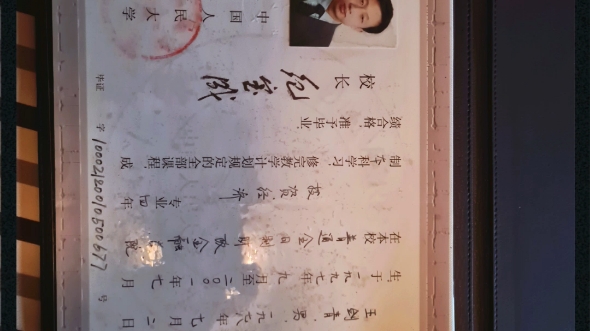 王剑青,男,一九七八年七月二日
生,于一九九七年九月至二〇〇一年七月
在本校普通全日制财政金融学院
投资经济专业四年
制本科学习,修完教学计划规定的全部课程,成
绩合格,准予毕业.
校长 纪宝成
中国人民大学
毕证 字 号